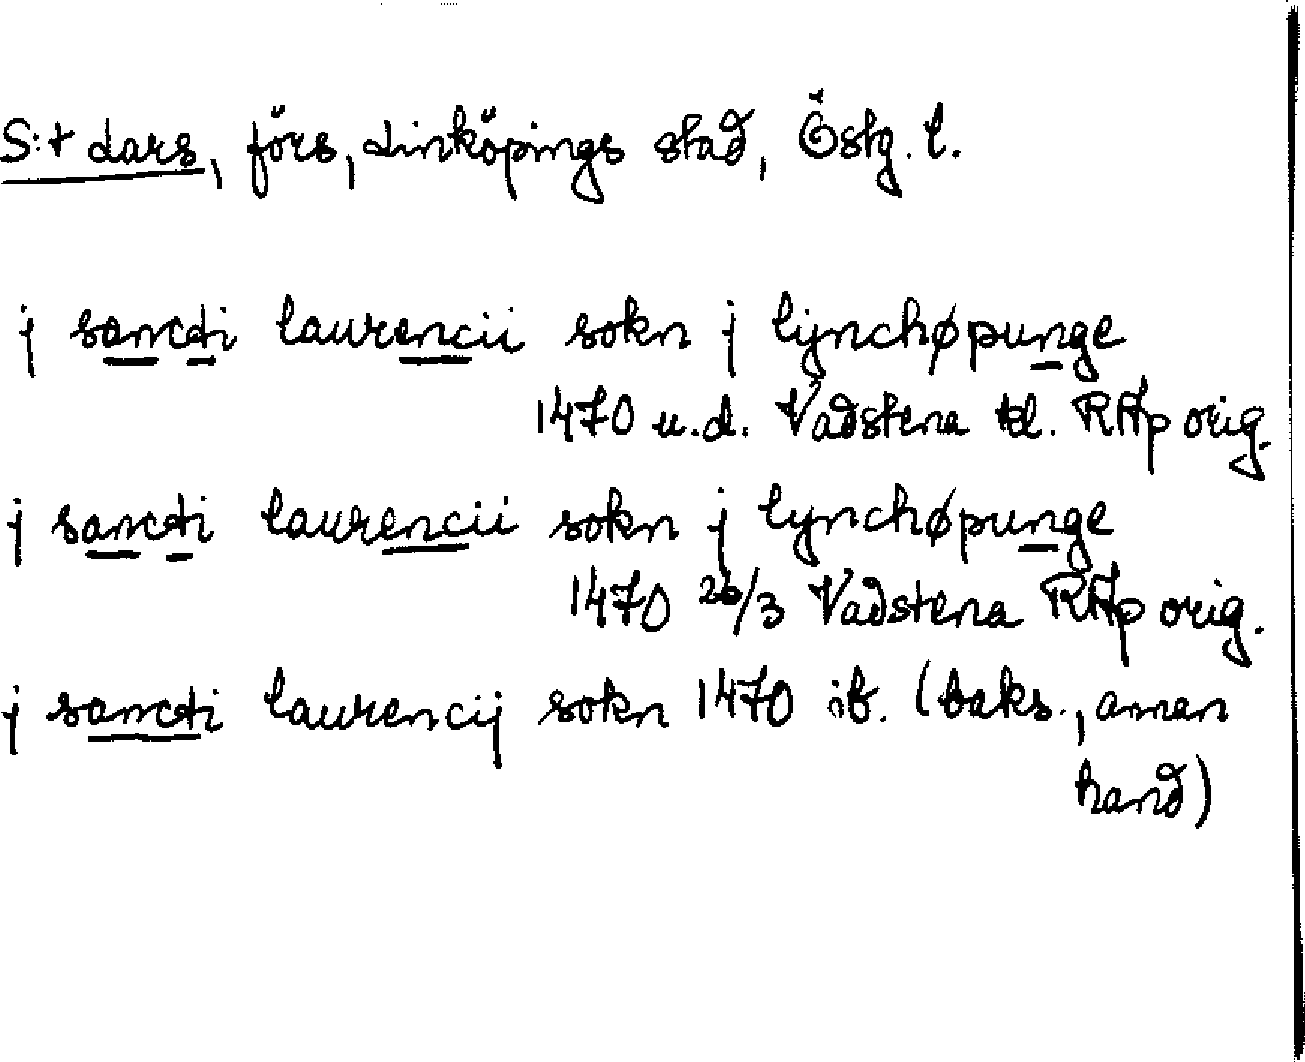 S:t Lars, förs, Linköpings stad, Östg. l.
j sancti laurencii sokn j lijnchøpunge
1470 u.d. Vadstena kl. RAp orig.
j sancti laurencii sokn j lynchøpunge
1470 26/3 Vadstena RAp orig.
j sancti laurencij sokn 1470 ib. (baks., annan
hand)